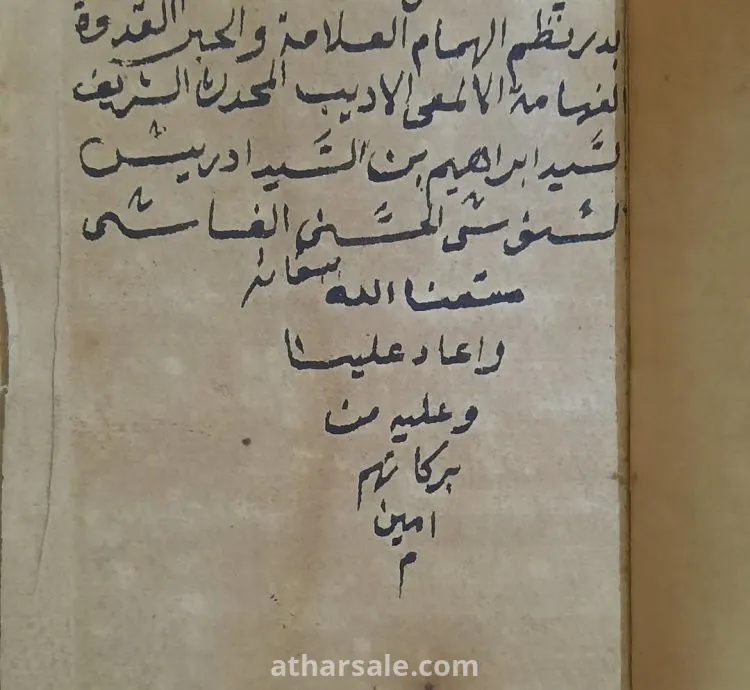 بدر نظم الهمام العلامة والحبر القدوة
الفهامة الالمعى الاديب المحدث الشريف
السيد ابراهيم بن السيد ادريس
السنوسى الحسنى الفاسى
متعنا الله ببقائه
واعاد علينا
وعليه من
بركاتهم
امين
م
atharsale.com